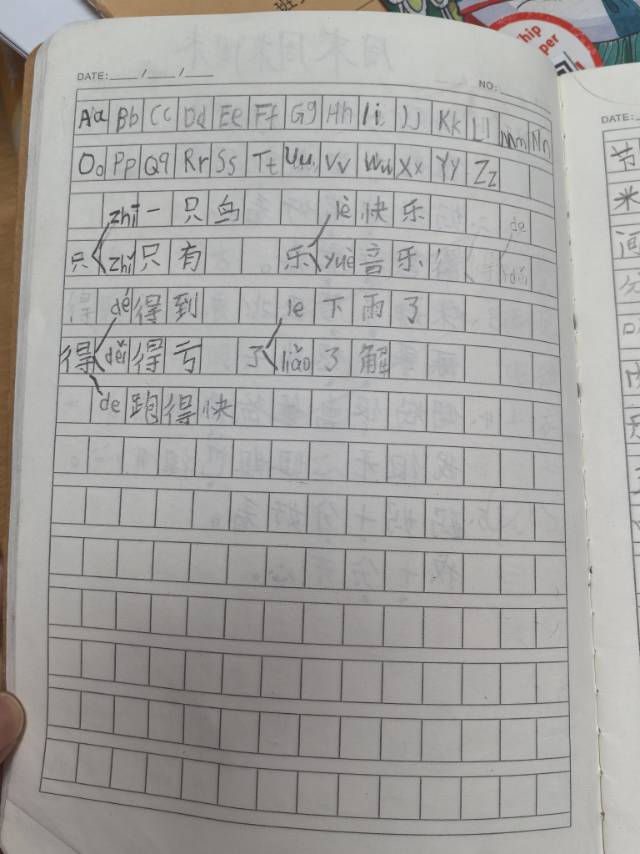 DATE: / /
NO:
Aa Bb Cc Dd Ee Ff Gg Hh Ii Jj Kk Ll Mm Nn
Oo Pp Qq Rr Ss Tt Uu Vv Ww Xx Yy Zz
zhī 一只鸟 lè 快乐
只 zhǐ 只有 乐 yuè 音乐
dé 得到 le 下雨了
得 děi 得亏 了 liǎo 了解
de 跑得快
DATE:
米